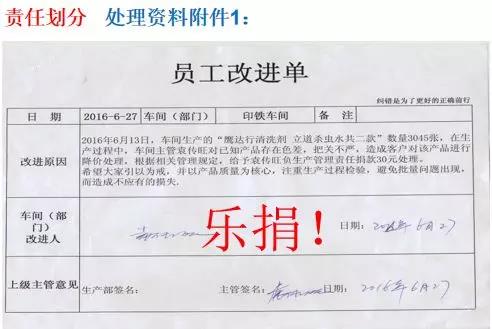 责任划分 处理资料附件1：
员工改进单
纠错是为了更好的正确前行
日 期 2016-6-27 车间（部门） 印铁车间 备 注
改进原因
2016年6月13日，车间生产的“鹰达行清洗剂 立道杀虫水共二款”数量3045张，在生
产过程中，车间主管袁传旺对已知产品存在色差，把关不严，造成客户对该产品进行
降价处理，根据相关管理规定，给予袁传旺负生产管理责任捐款30元处理。
希望大家引以为戒，并以产品质量为核心，注重生产过程检验，避免批量问题出现，
而造成不应有的损失.
车间（部
门）
改进人
乐捐！
日期：2016年6月27
上级主管意见
生产部签名： 主管签名： 日期：2016年6月27